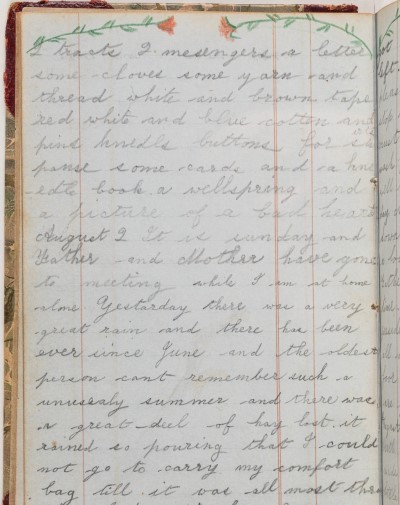 2 tracts 2 mesengers a letter
some cloves some yarn and
thread white and brown tape
red white and blue cotton and
pins kneedls buttons for
some cards and a kne
edle book a wellspring and
a picture of a bad heart
August 2 It is sunday and
Father and Mother have gone
to meeting while I am at home
alone Yestarday there was a very
great rain and there has been
ever since June and the oldest
person cant remember such a
unusealy summer and there was
a great deel of hay lost. it
rained so pouring that I could
not go to carry my comfort
bag till it was all most